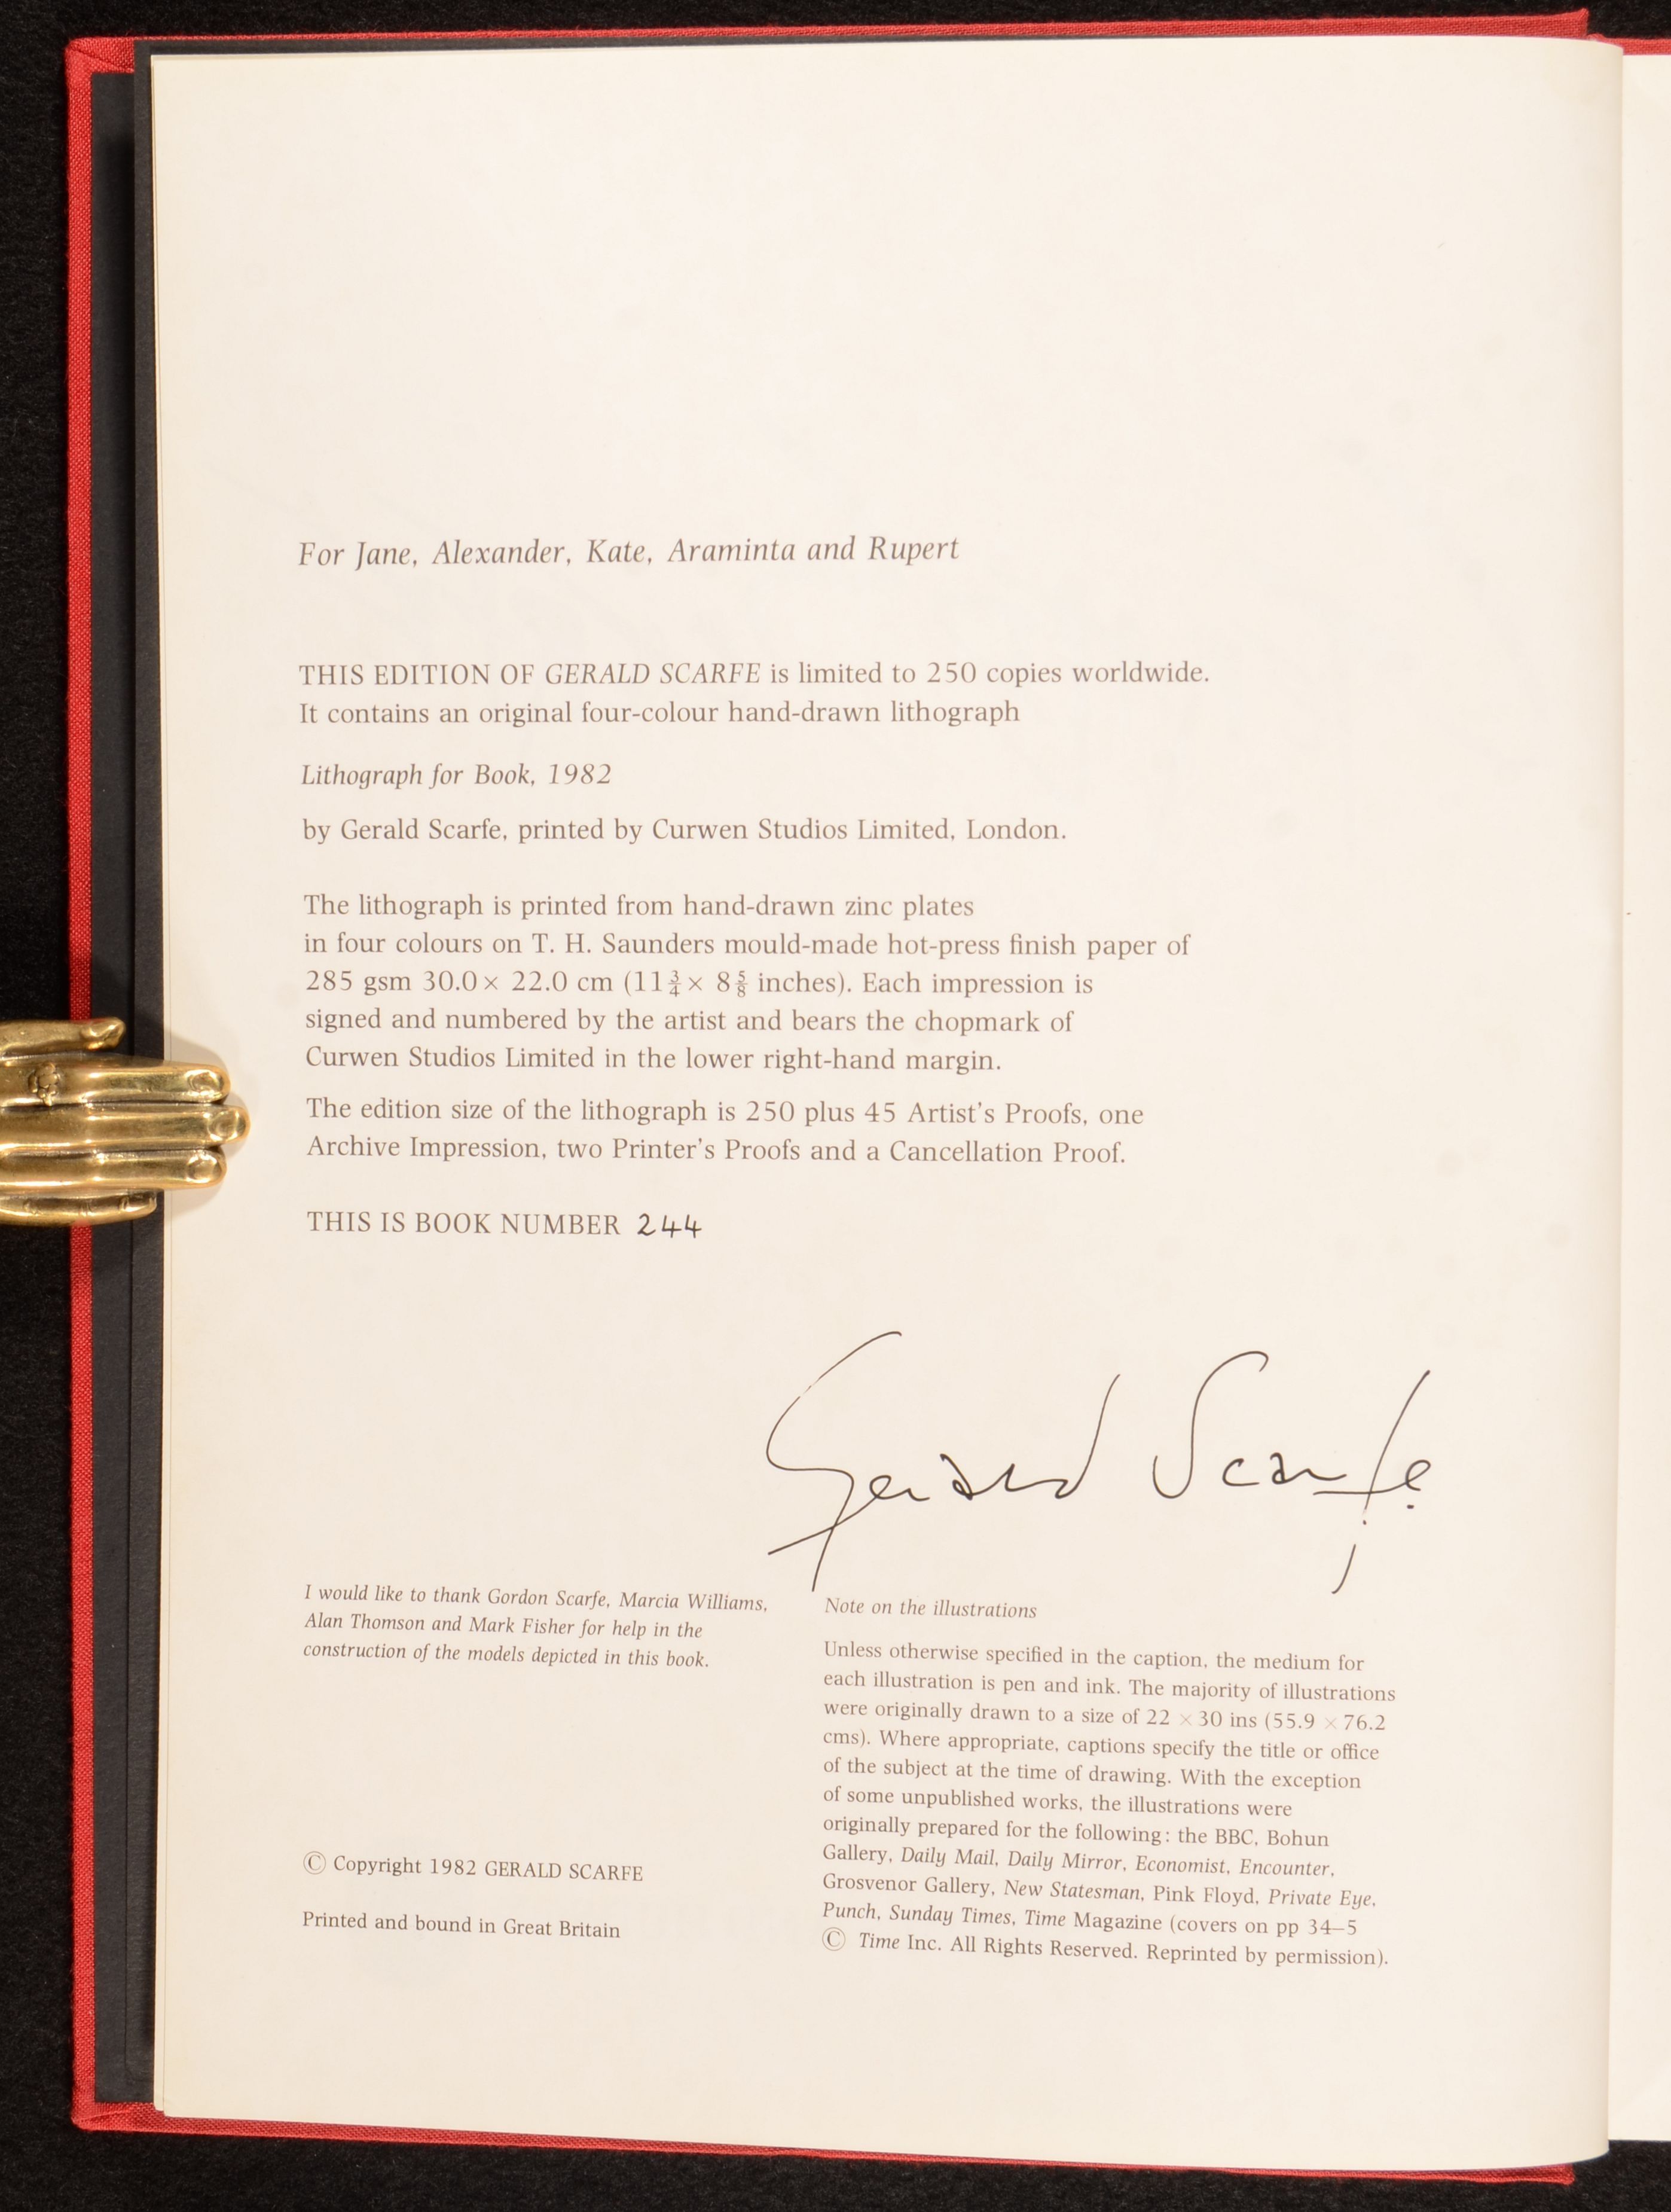 For Jane, Alexander, Kate, Araminta and Rupert
THIS EDITION OF GERALD SCARFE is limited to 250 copies worldwide.
It contains an original four-colour hand-drawn lithograph
Lithograph for Book, 1982
by Gerald Scarfe, printed by Curwen Studios Limited, London.
The lithograph is printed from hand-drawn zinc plates
in four colours on T. H. Saunders mould-made hot-press finish paper of
285 gsm 30.0 × 22.0 cm (11¾ × 8⅝ inches). Each impression is
signed and numbered by the artist and bears the chopmark of
Curwen Studios Limited in the lower right-hand margin.
The edition size of the lithograph is 250 plus 45 Artist's Proofs, one
Archive Impression, two Printer's Proofs and a Cancellation Proof.
THIS IS BOOK NUMBER 244
Gerald Scarfe
I would like to thank Gordon Scarfe, Marcia Williams,
Alan Thomson and Mark Fisher for help in the
construction of the models depicted in this book.
© Copyright 1982 GERALD SCARFE
Printed and bound in Great Britain
Note on the illustrations
Unless otherwise specified in the caption, the medium for
each illustration is pen and ink. The majority of illustrations
were originally drawn to a size of 22 × 30 ins (55.9 × 76.2
cms). Where appropriate, captions specify the title or office
of the subject at the time of drawing. With the exception
of some unpublished works, the illustrations were
originally prepared for the following: the BBC, Bohun
Gallery, Daily Mail, Daily Mirror, Economist, Encounter,
Grosvenor Gallery, New Statesman, Pink Floyd, Private Eye,
Punch, Sunday Times, Time Magazine (covers on pp 34–5
© Time Inc. All Rights Reserved. Reprinted by permission).